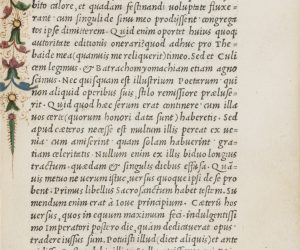 bito calore, et quadam festinandi uoluptate fluxe-
rant: cum singuli de sinu meo prodissent: congrega
tos ipse dimitterem. Quid enim oportet huius quoq;
autoritate editionis onerari? quod adhuc pro The-
baide mea (quamuis me reliquerit) timeo. Sed et Culi
cem legimus: & Batrachomyomachiam etiam agno
scimus. Nec quisquam est illustrium Poetarum: qui
non aliquid operibus suis stilo remissiore præluse-
rit. Quid quod hæc serum erat continere: cum illa
uos certe (quorum honori data sunt) haberetis. Sed
apud cæteros necesse est multum illis pereat ex ue
nia: cum amiserint: quam solam habuerint gra-
tiam celeritatis. Nullum enim ex illis biduo longius
tractum: quædam & singulis diebus effusa. Quã-
uis metuo ne uerum istud uersus quoque ipsi de se pro
bent. Primus libellus Sacrosanctum habet testem. Su
mendum enim erat a Ioue principium. Caterũ hos
uersus, quos in equum maximum feci: indulgentissi
mo Imperatori postero die, quam dedicauerat opus:
tradere iussus sum. Potuisti illud: dicet aliquis: et ante